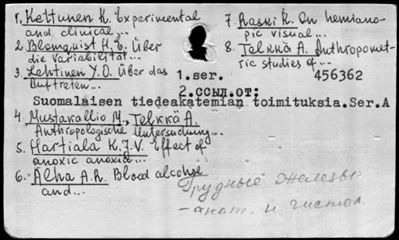 1. Kettunen K. Experimental
and clinical...
2. Blomquist H.E. Über
die Variabilität...
3. Lehtinen Y.O. Über das
Auftreten...
7. Raski K. On hemiano-
pic visual...
8. Telkkä A. Anthropomet-
ric studies of...
1.ser. 456362
2.ССЫЛ.ОТ:
Suomalaisen tiedeakatemian toimituksia.Ser.A
4. Mustakallio M., Telkkä A.
Anthropologische Untersuchung...
5. Hartiala K.J.V. Effect of
anoxic anoxia...
6. Alha A.R. Blood alcohol
and...
Грудные железы
- анат. и гистол.